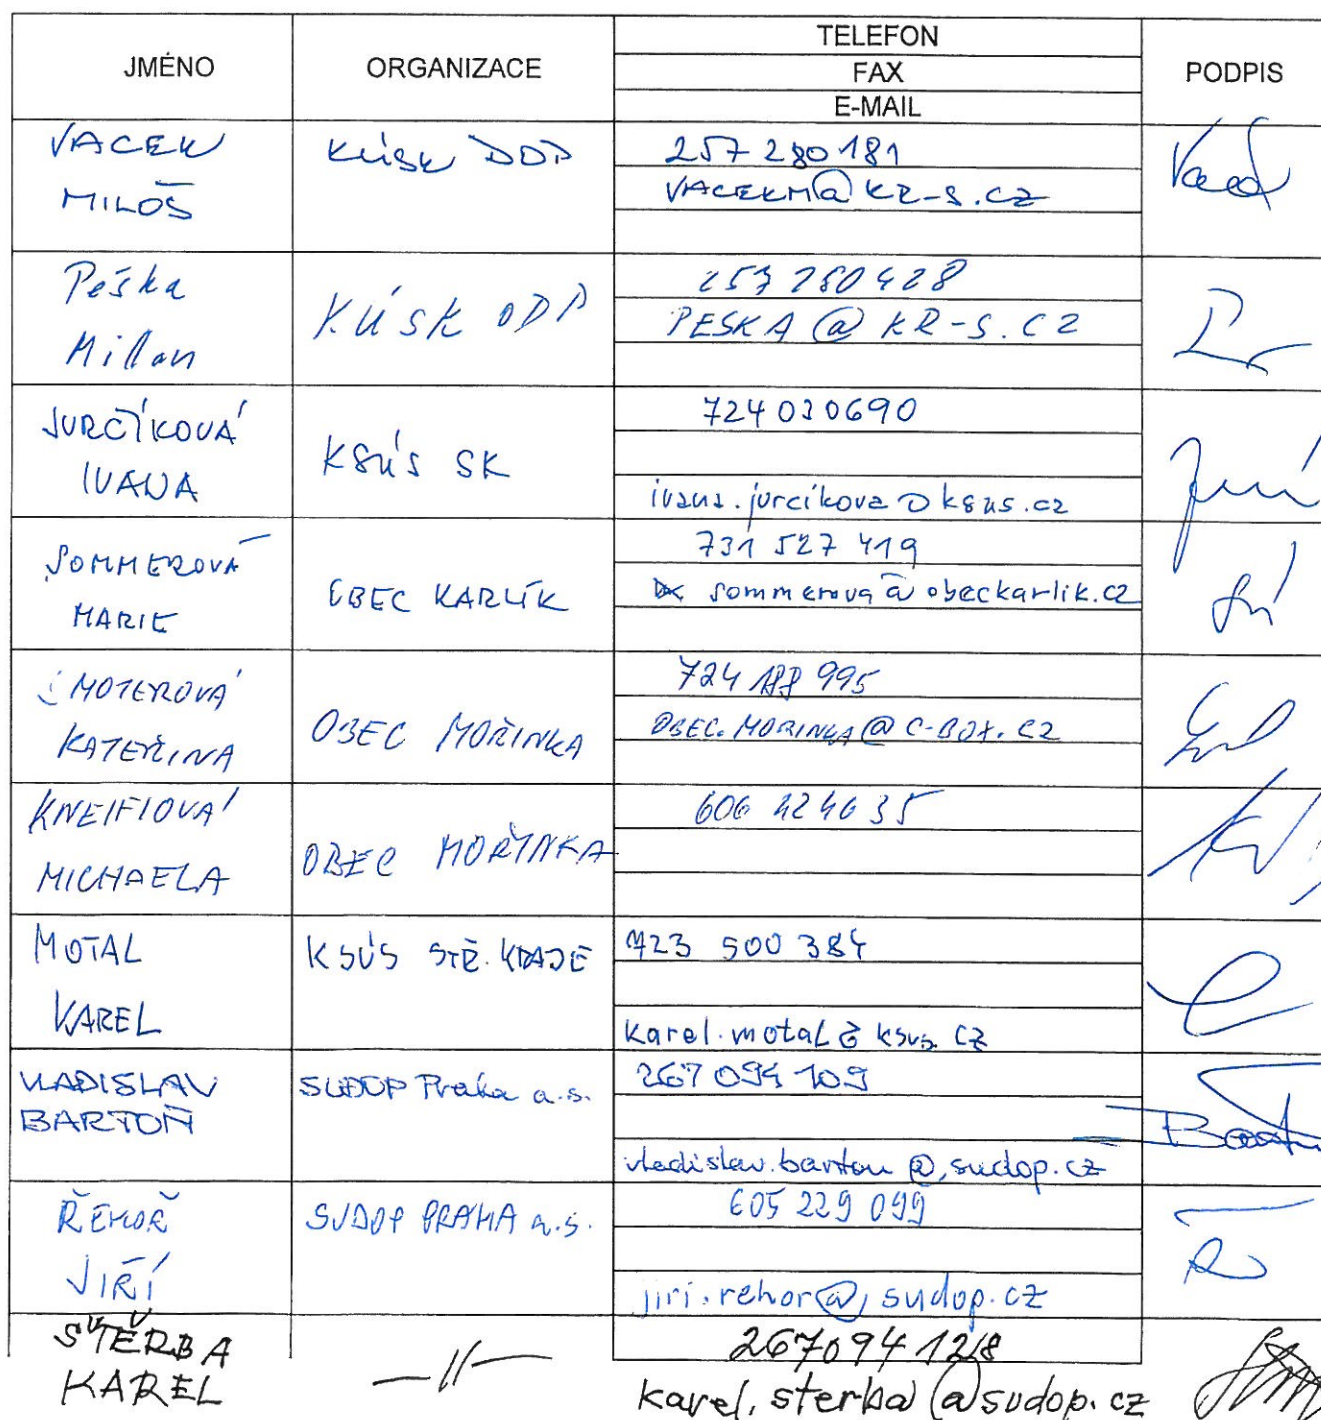 JMÉNO
ORGANIZACE
TELEFON
FAX
E-MAIL
PODPIS
VACEK
MILOŠ
KÚSK DOP
257 280 181
VACEKM@KR-S.CZ
Peška
Milan
KÚSK ODP
257 280 428
PESKA@KR-S.CZ
JURČÍKOVÁ
IVANA
KSÚS SK
724 030690
ivana.jurcikova@ksus.cz
SOMMEROVÁ
MARIE
OBEC KARLÍK
731 527 419
sommerova@obeckarlik.cz
KATEŘINA
OBEC MOŘINKA
724 188 995
OBEC.MORINKA@C-BOX.CZ
MICHAELA
OBEC MOŘINKA
606 424635
MOTAL
KAREL
KSÚS STŘ. KRAJE
723 500 384
karel.motal@ksus.cz
VLADISLAV
BARTOŇ
SUDOP Praha a.s.
267 094 109
vladislav.barton@sudop.cz
ŘEHOŘ
JIŘÍ
SUDOP PRAHA a.s.
605 229 099
jiri.rehor@sudop.cz
ŠTĚRBA
KAREL
—//—
267094 128
karel.sterba@sudop.cz